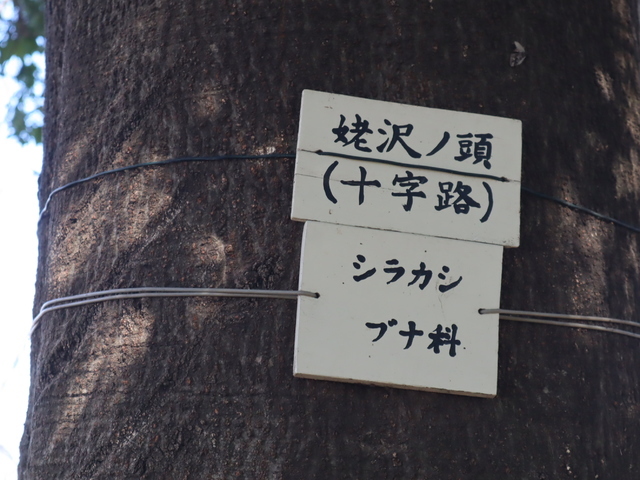 姥沢ノ頭
(十字路)
シラカシ
ブナ科